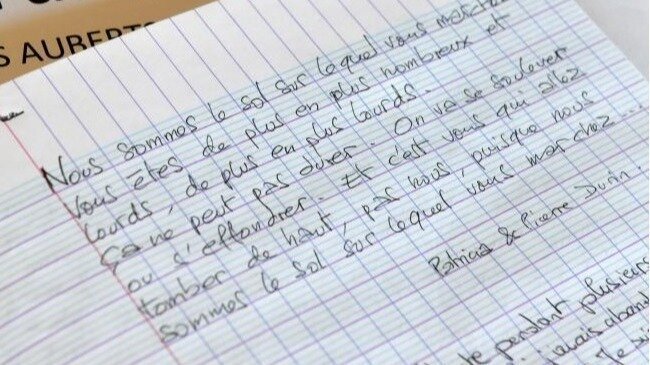 S AUBERTS
Nous sommes le sol sur lequel vous marchez
Vous êtes de plus en plus nombreux et
lourds, de plus en plus lourds.
Ça ne peut pas durer. On va se soulever
ou s'effondrer. Et c'est vous qui allez
tomber de haut, pas nous, puisque nous
sommes le sol sur lequel vous marchez...
Patricia & Pierre Durin.
te pendant plusieurs
jamais aband
Je sui